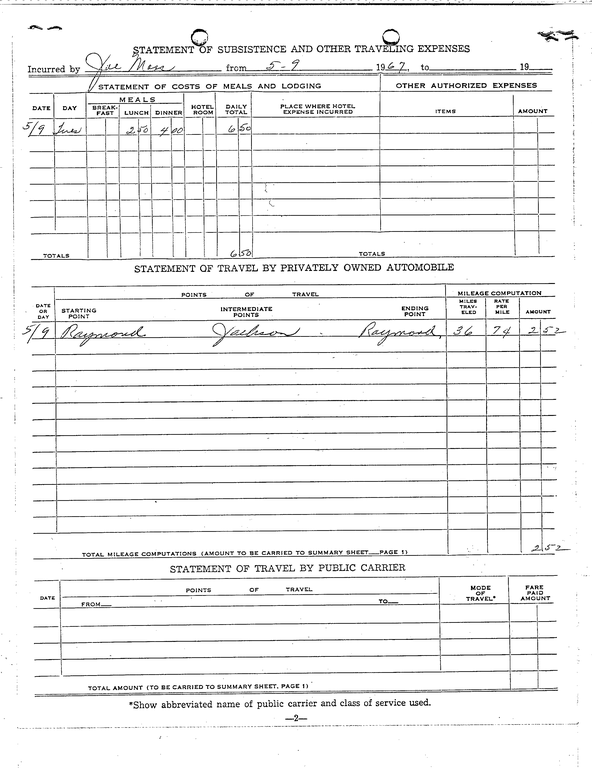 STATEMENT OF SUBSISTENCE AND OTHER TRAVELING EXPENSES
Incurred by Joe Moss from 5-9 1967, to 19
STATEMENT OF COSTS OF MEALS AND LODGING OTHER AUTHORIZED EXPENSES
DATE DAY MEALS BREAK-FAST LUNCH DINNER HOTEL ROOM DAILY TOTAL PLACE WHERE HOTEL EXPENSE INCURRED ITEMS AMOUNT
5/9 Tues 2 50 4 00 6 50
TOTALS 6 50 TOTALS
STATEMENT OF TRAVEL BY PRIVATELY OWNED AUTOMOBILE
POINTS OF TRAVEL MILEAGE COMPUTATION
DATE OR DAY STARTING POINT INTERMEDIATE POINTS ENDING POINT MILES TRAV-ELED RATE PER MILE AMOUNT
5/9 Raymond Jackson - Raymond, 36 7¢ 2 52
TOTAL MILEAGE COMPUTATIONS (AMOUNT TO BE CARRIED TO SUMMARY SHEET PAGE 1) 2 52
STATEMENT OF TRAVEL BY PUBLIC CARRIER
DATE POINTS OF TRAVEL MODE OF TRAVEL* FARE PAID AMOUNT
FROM TO
TOTAL AMOUNT (TO BE CARRIED TO SUMMARY SHEET, PAGE 1)
*Show abbreviated name of public carrier and class of service used.
—2—